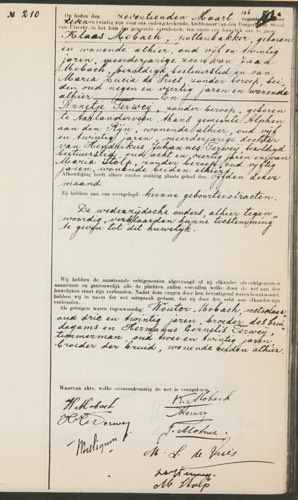 No 210
Op heden den zeventienden Maart
Klaas Mobach, pottenbakker, geboren
en wonende alhier, oud vijf en twintig
jaren, meerderjarige zoon van Jaak
Mobach, bestuurslid en van
Maria Lucia de Vries, zonder beroep, bei-
den oud negen en veertig jaren en wonende
alhier
en
Annetje Terwey, zonder beroep, geboren
te Aarlanderveen, thans gemeente Alphen
aan den Rijn, wonende alhier, oud vijf
en twintig jaren, meerderjarige dochter
van Hendrikus Johannes Terwey,
bestuurslid, oud acht en veertig jaren en van
Maria Stolp, zonder beroep, oud vijftig
jaren, wonende beiden alhier.
Afkondiging heeft alhier zonder stuiting plaats gehad den vijfden dezer
maand
Zij hebben aan ons overgelegd: hunne geboorteextracten.
De wederzijdsche ouders, alhier tegen-
woordig, verklaarden hunne toestemming
te geven tot dit huwelijk.
Wij hebben de aanstaande echtgenooten afgevraagd of zij elkander als echtgenooten
aannemen en getrouwelijk alle de plichten zullen vervullen welke door de wet aan den
huwelijken staat zijn verbonden. Nadat deze vragen door hen bevestigend waren beantwoord,
hebben wij in naam der wet uitspraak gedaan, dat zij door den echt aan elkander zijn
verbonden.
Als getuigen waren tegenwoordig: Wouter Mobach, metselaar,
oud drie en twintig jaren, broeder des brui-
degoms en Hermanus Cornelis Terwey,
timmerman, oud twee en twintig jaren,
broeder der bruid, wonende beiden alhier.
Waarvan akte, welke overeenkomstig de wet is voorgelezen.
W. Mobach
K. Mobach
H C Terwey
A Terwey
J. Mobach
M. L. de Vries
H J Terwey
M Stolp